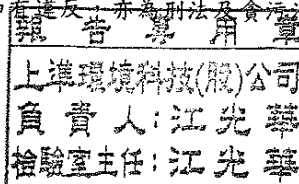 有違反，亦為刑法及貪污
報告專用章
上準環境科技(股)公司
負責人：江光華
檢驗室主任：江光華